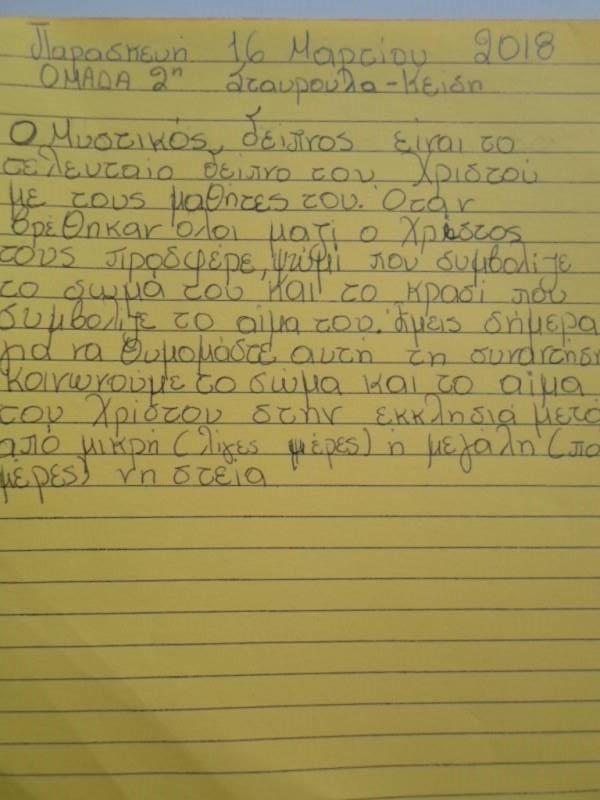 Παρασκευή 16 Μαρτίου 2018
ΟΜΑΔΑ 2η Σταυρούλα-Κείδη
Ο Μυστικός δείπνος είναι το
τελευταίο δείπνο του Χριστού
με τους μαθητές του. Όταν
βρέθηκαν όλοι μαζί ο Χρίστος
τους προσφέρε, ψωμί που συμβολίζε
το σώμα του και το κρασί που
συμβολίζε το αίμα του. Εμείς σήμερα
για να θυμομάστε αυτή τη συνάντηση
κοινωνούμε το σώμα και το αίμα
του Χρίστου στην εκκλησιά μετά
από μικρή (λίγες μέρες) ή μεγάλη (πο
μέρες) νηστεία